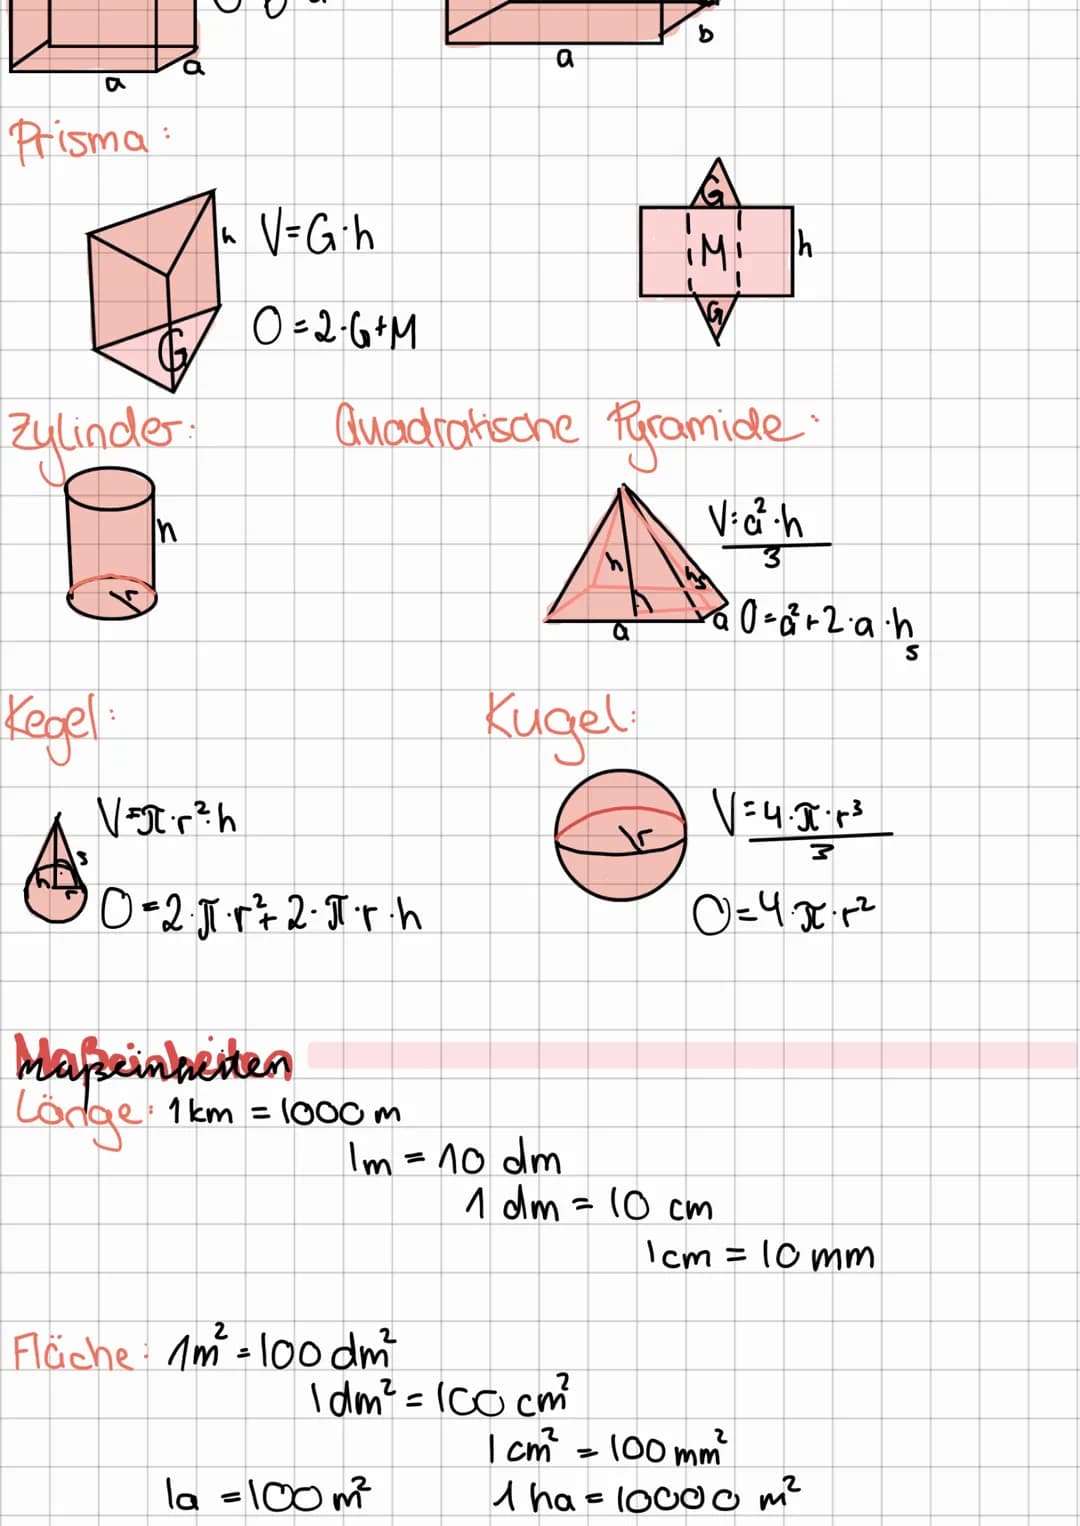 a
a
a
b
Prisma:
h
V=G·h
O=2·G+M
G
G
M
h
G
Zylinder:
h
r
Quadratische Pyramide:
h
hs
a
a
V=a²·h
3
O=a²+2·a·hs
Kegel:
h
s
r
V=π·r²·h
O=2·π·r²+2·π·r·h
Kugel:
r
V=4·π·r³
3
O=4·π·r²
Maßeinheiten
Länge: 1km = 1000 m
1m = 10 dm
1 dm = 10 cm
1cm = 10 mm
Fläche: 1m² = 100 dm²
1dm² = 100 cm²
1 cm² = 100 mm²
1a = 100 m²
1 ha = 10000 m²